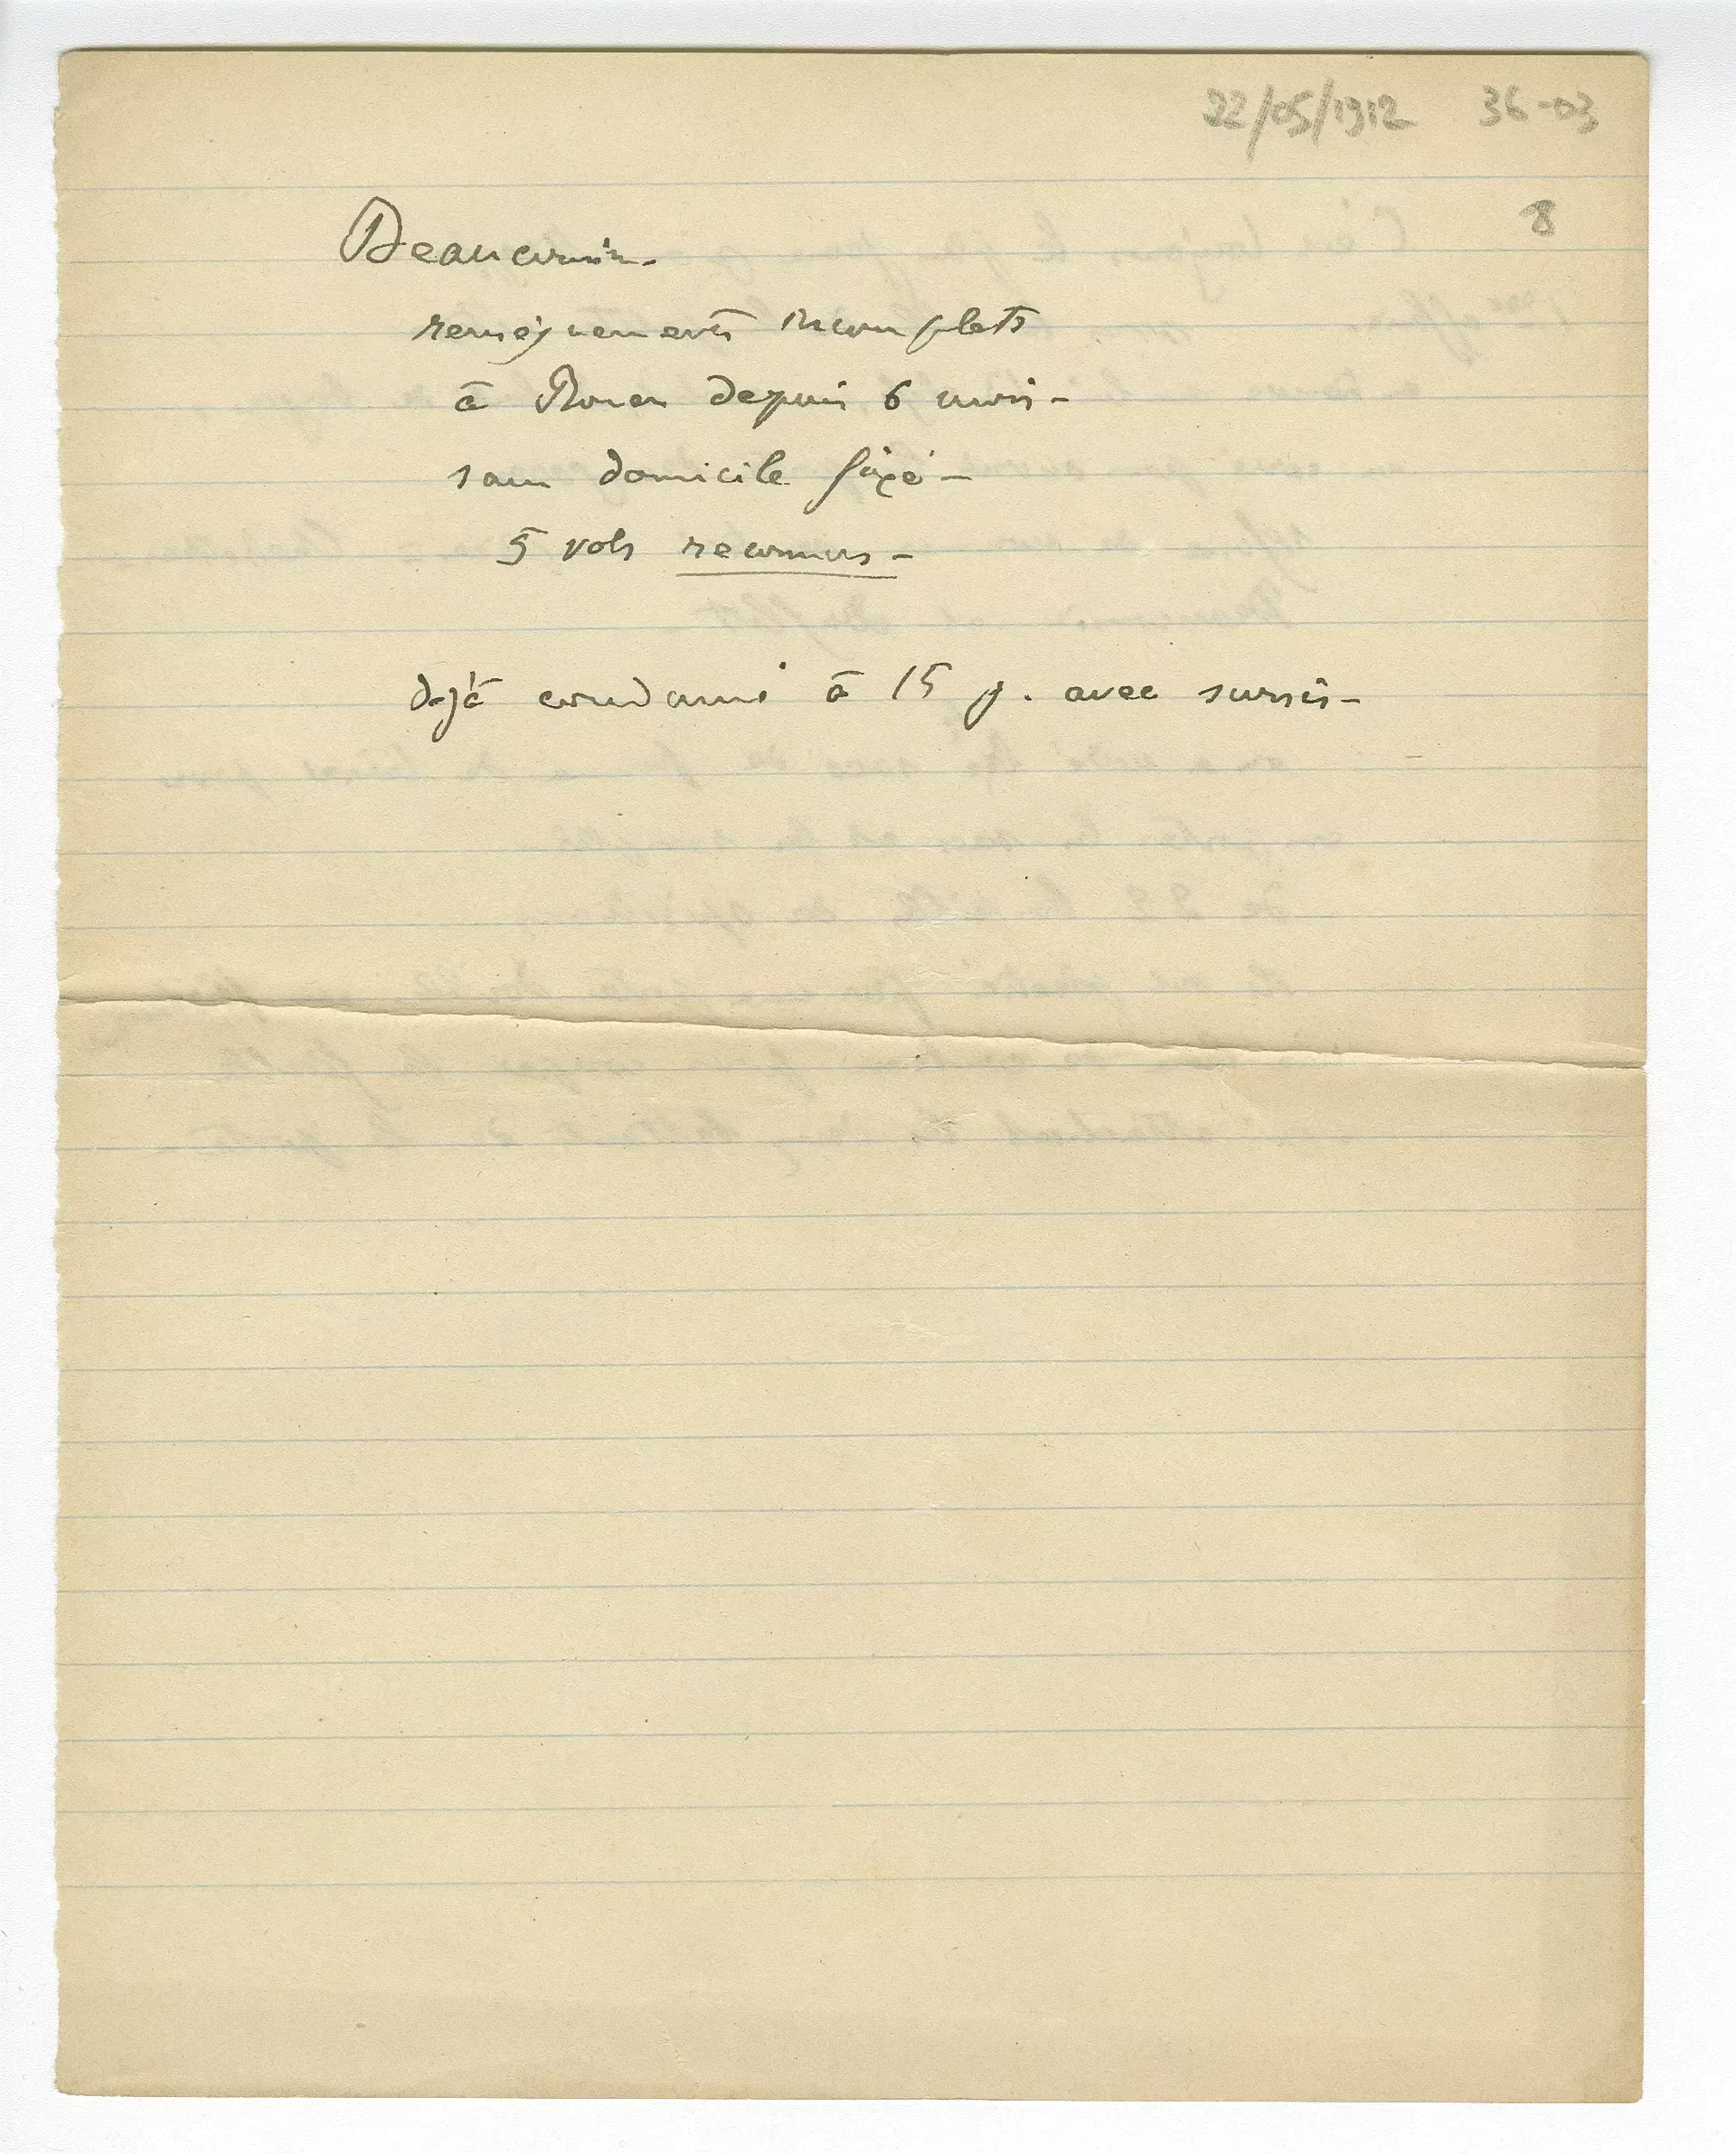 22/05/1912 36-03
8
Beaucousin -
renseignements incomplets
à Rouen depuis 6 mois -
sans domicile fixe -
5 vols reconnus -
déjà condamné à 15 j. avec sursis -